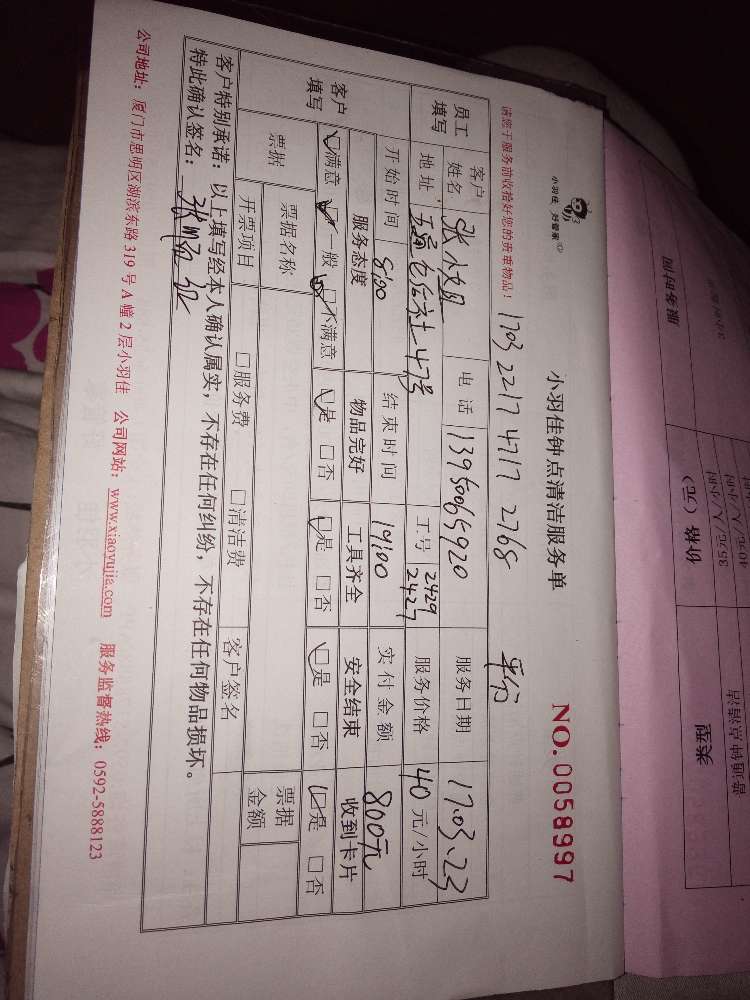 小羽佳 好管家
小羽佳钟点清洁服务单
NO. 0058997
请您于服务前收拾好您的贵重物品！ 1703 2217 4717 2768 平分
员工填写 客户姓名 张 电话 13950065920 服务日期 17.03.23
地址 47号 工号 2429 2427 服务价格 40元/小时
客户填写 开始时间 8:00 结束时间 14:00 实付金额 800元
服务态度 物品完好 工具齐全 安全结束 收到卡片
满意 一般 不满意 是 □否 是 □否 是 □否 是 □否
票据 票据名称 □服务费 □清洁费 票据金额
开票项目 客户签名
客户特别承诺：以上填写经本人确认属实，不存在任何纠纷，不存在任何物品损坏。
特此确认签名：
公司地址：厦门市思明区湖滨东路319号A幢2层小羽佳 公司网站：www.xiaoyujia.com 服务监督热线：0592-5888123
服务时间 价格（元） 类型
35元/人/小时 普通钟点清洁
40元/人/小时